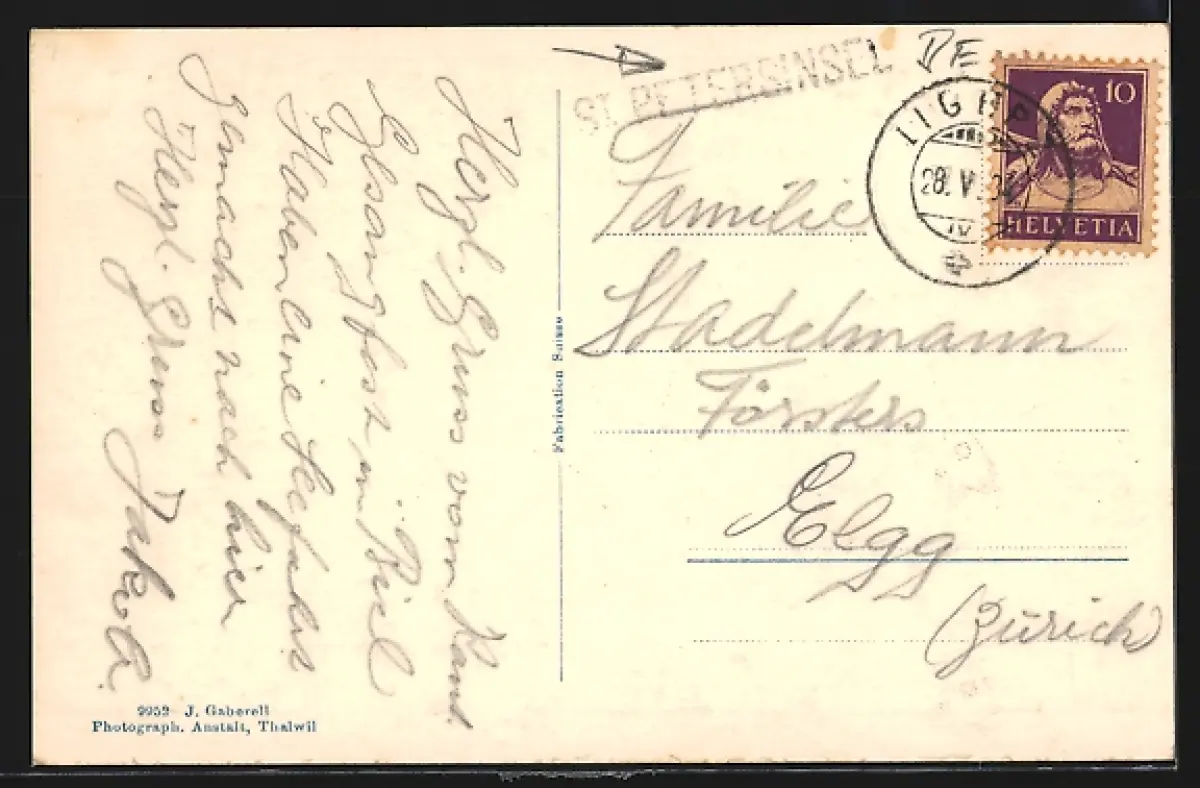 Herzl. Gruss vom Kant.
Gesangfest in Biel
Haben eine Seefahrt
gemacht nach hier
Herzl. Gruss Jakob.
9952 J. Gaberell
Photograph. Anstalt, Thalwil
Fabrication Suisse
ST. PETERSINSEL
BE
LIGERZ
28. V.
10
HELVETIA
Familie
Stadelmann
Försters
Elgg
(Zürich)